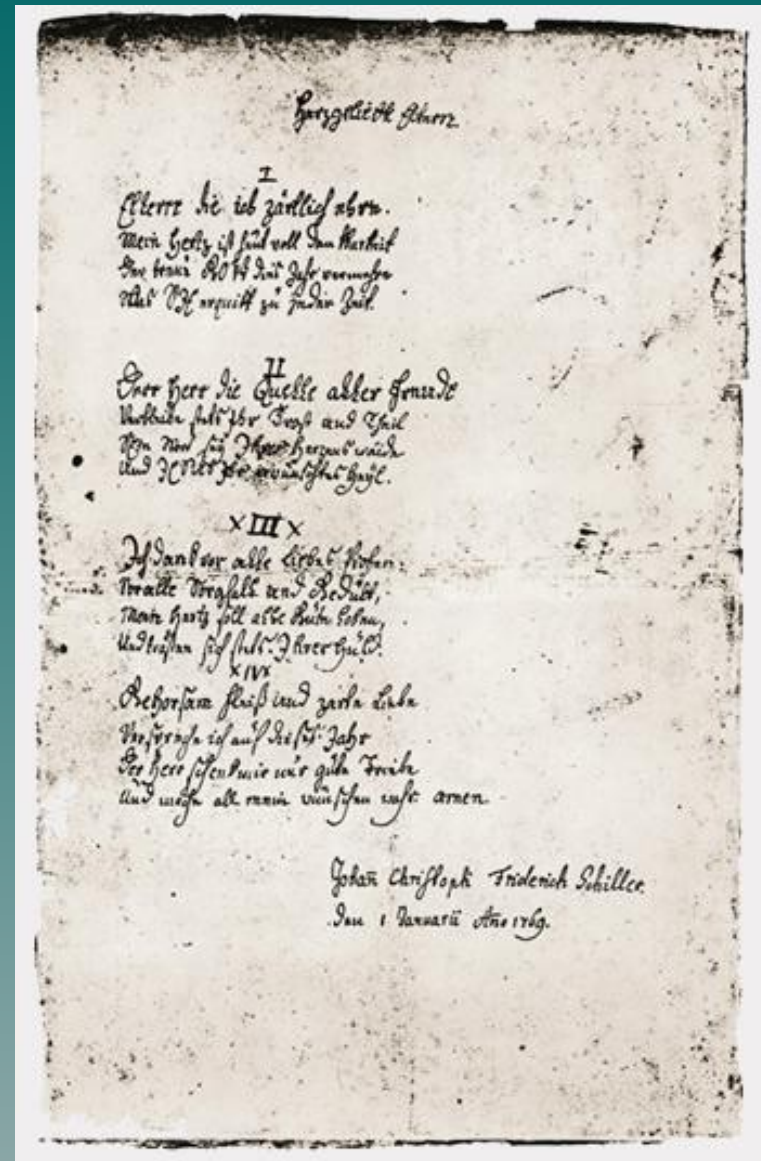 Herzgeliebte Eltern
I
Eltern die ich zärtlich ehre.
Mein Hertz ist heut voll Danckbarkeit
Der treue GOtt dies Jahr vermehre
Was SIE erquickt zu jeder Zeit.
II
Der Herr die Quelle aller Freude
Verbleibe stets Ihr Trost und Theil
Sein Wort sey Ihres Herzens waide
Und JESUS Ihr erwünschtes Heyl.
XIIIX
Ich danck vor alle Liebes Proben,
Vor alle Sorgfalt und Gedult,
Mein Hertz soll alle Güte loben,
Und trösten sich stets Ihrer Huld.
XIVX
Gehorsam Fleiß und zarte Liebe
Verspreche ich auf dieses Jahr
Der Herr schenk mir nur gute Triebe
Und mache all mein wünschen wahr. amen.
Johañ Christoph Friderich Schiller.
den 1 Januarii Año 1769.